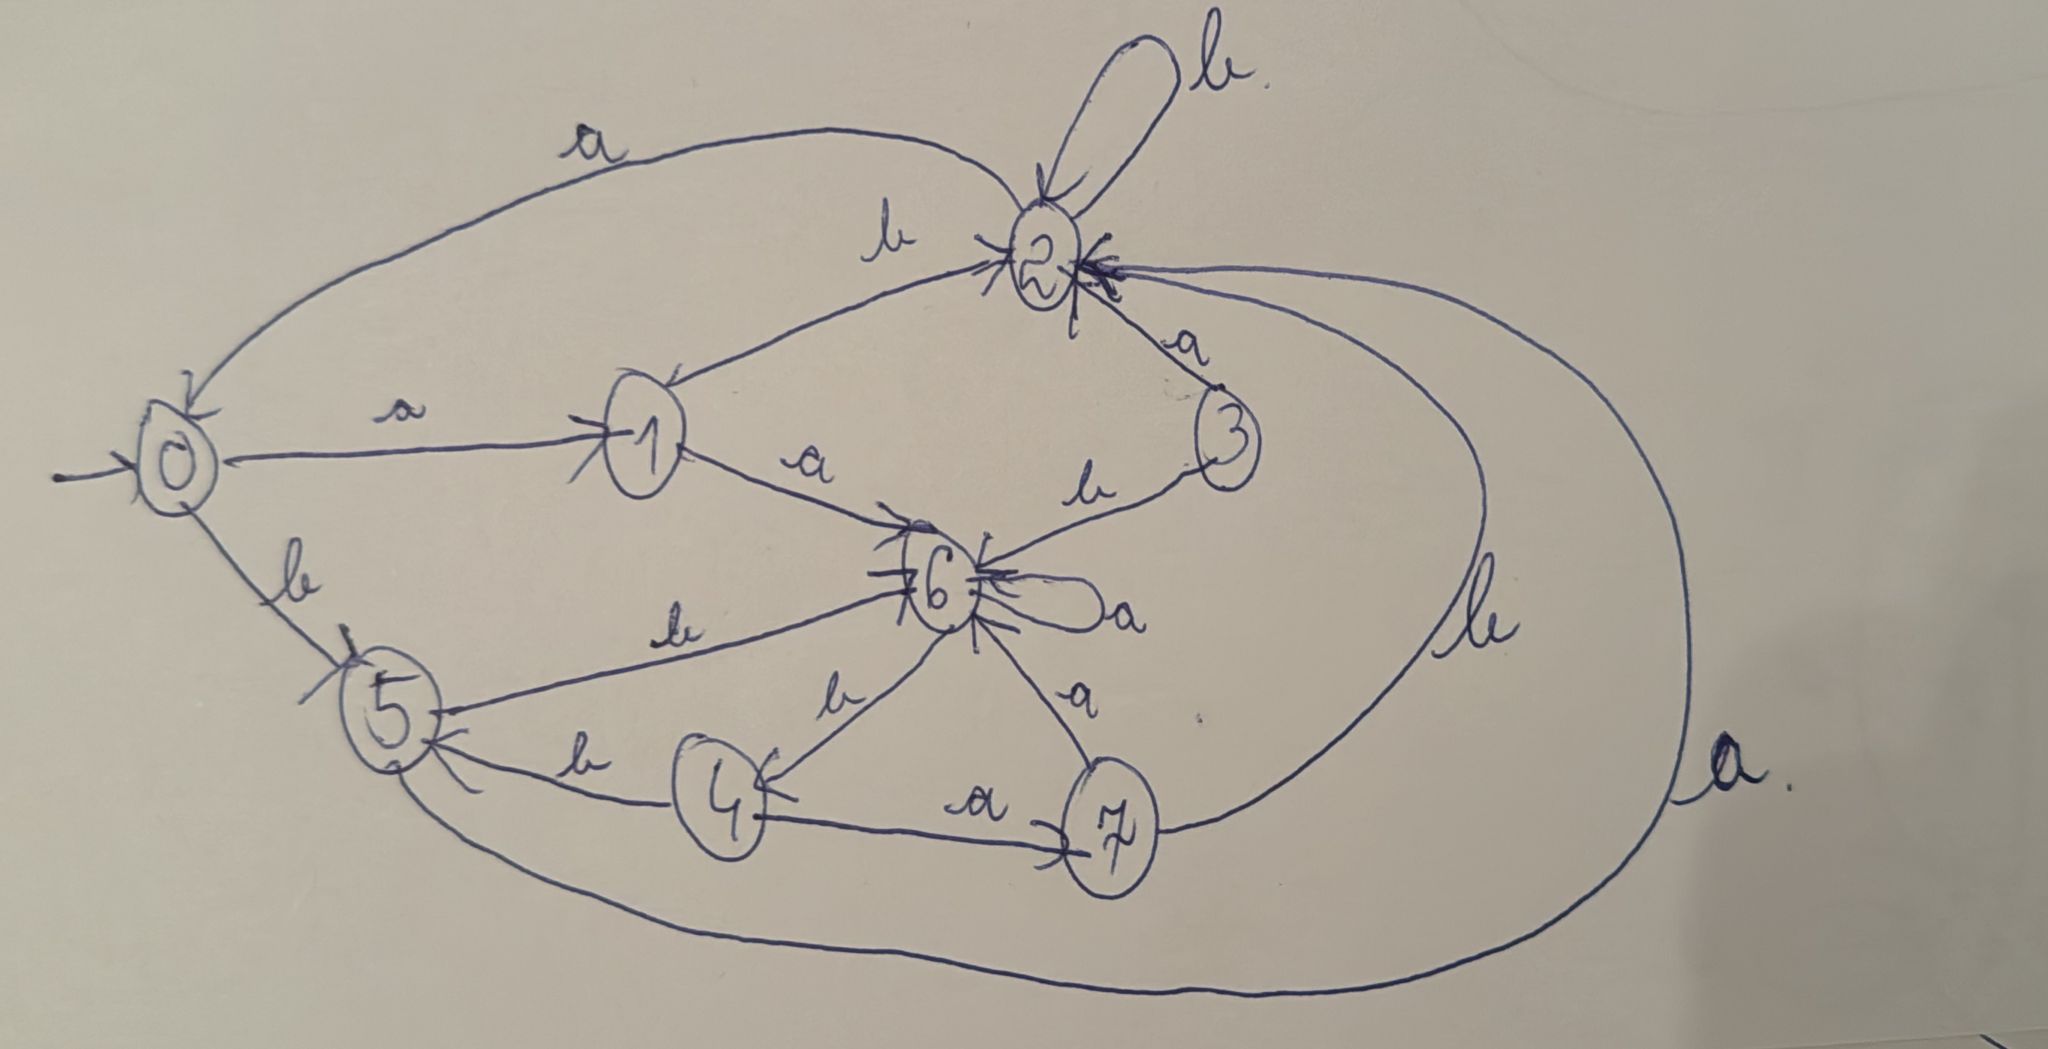 b.
a
b
2
a
a
0
1
3
a
b
6
a
b
b
b
5
b
a
b
4
a
7
a.